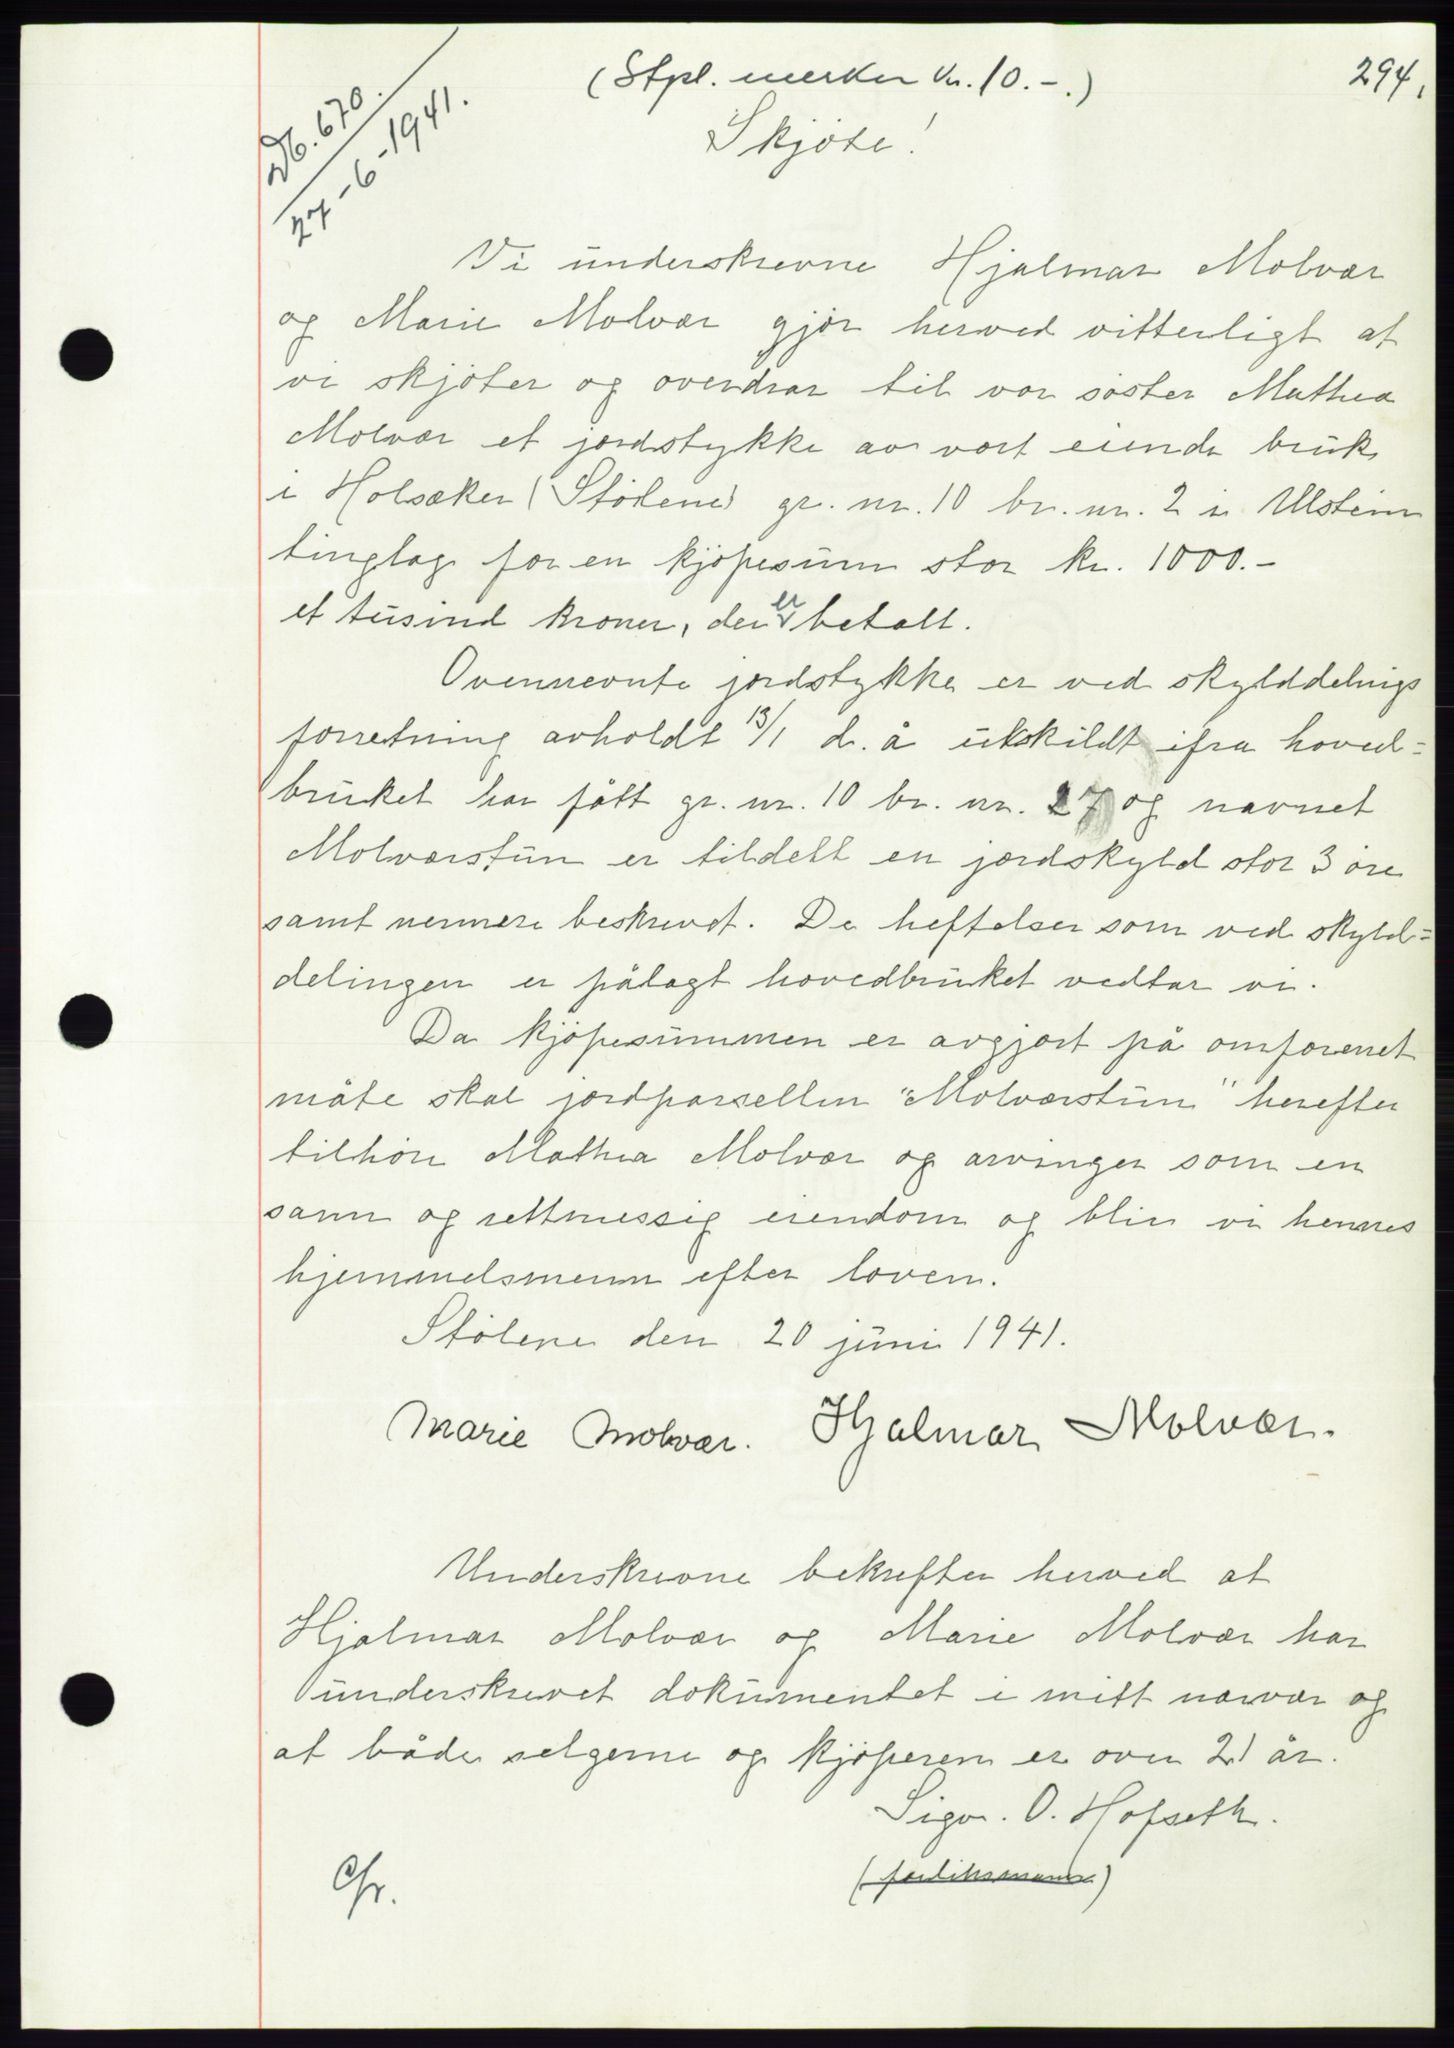 (Stpl. merker kr. 10.-.)
294.
Db. 670.
27-6-1941.
Skjøte!
Vi underskrevne Hjalmar Molvær
og Marie Molvær gjör herved vitterligt at
vi skjöter og overdrar til vor söster Mathea
Molvær et jordstykke av vort eiende bruk
i Holsæker (Stölene) gr. nr. 10 br. nr. 2 i Ulstein
tinglag for en kjöpesum stor kr. 1000.-
et tusind kroner, der er betalt.
Ovennevnte jordstykke er ved skylddelings
forretning avholdt 13/1 d. å utskildt ifra hoved=
bruket har fått gr. nr. 10 br. nr. 27 og navnet
Molværstun er tildelt en jordskyld stor 3 öre
samt nermere beskrevet. De heftelser som ved skyld=
delingen er pålagt hovedbruket vedtar vi.
Da kjöpesummen er avgjort på omforenet
måte skal jordparsellen "Molværstun" herefter
tilhöre Mathea Molvær og arvinger som en
sann og rettmessig eiendom og blir vi hennes
hjemmelsmenn efter loven.
Stölene den 20 juni 1941.
Marie Molvær. Hjalmar Molvær.
Underskrevne bekrefter herved at
Hjalmar Molvær og Marie Molvær har
underskrevet dokumentet i mitt nærvær og
at både selgerne og kjöperen er over 21 år.
Sigv. O. Hofseth.
(forliksmann)